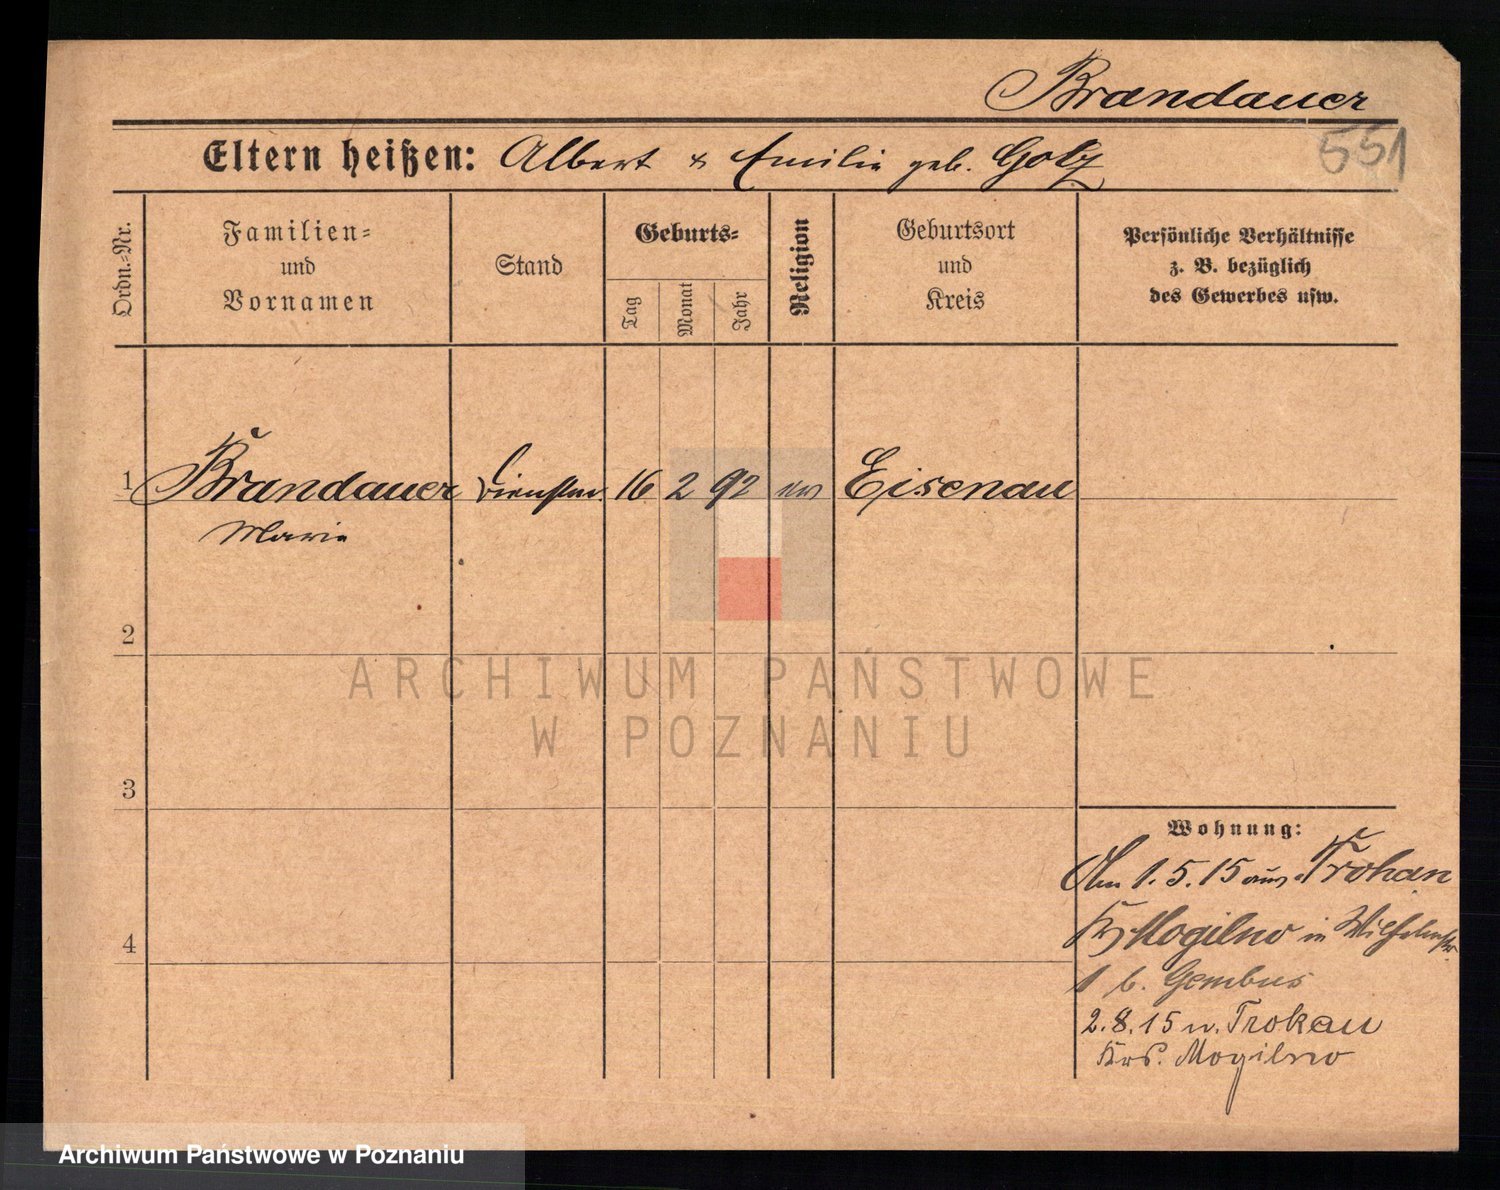 Brandauer
551
Eltern heißen: Albert & Emilie geb. Golz
Ordn.=Nr.
Familien=
und
Vornamen
Stand
Geburts=
Tag
Monat
Jahr
Religion
Geburtsort
und
Kreis
Persönliche Verhältnisse
z. B. bezüglich
des Gewerbes usw.
1 Brandauer Dienstm. 16 2 92 ev Eisenau
Marie
2
ARCHIWUM PAŃSTWOWE
W POZNANIU
3
Wohnung:
1.5.15 aus Trokan
4
Mogilno in Wilhelmstr.
1 b. Gembus
2.8.15 n. Trokau
Krs. Mogilno
Archiwum Państwowe w Poznaniu